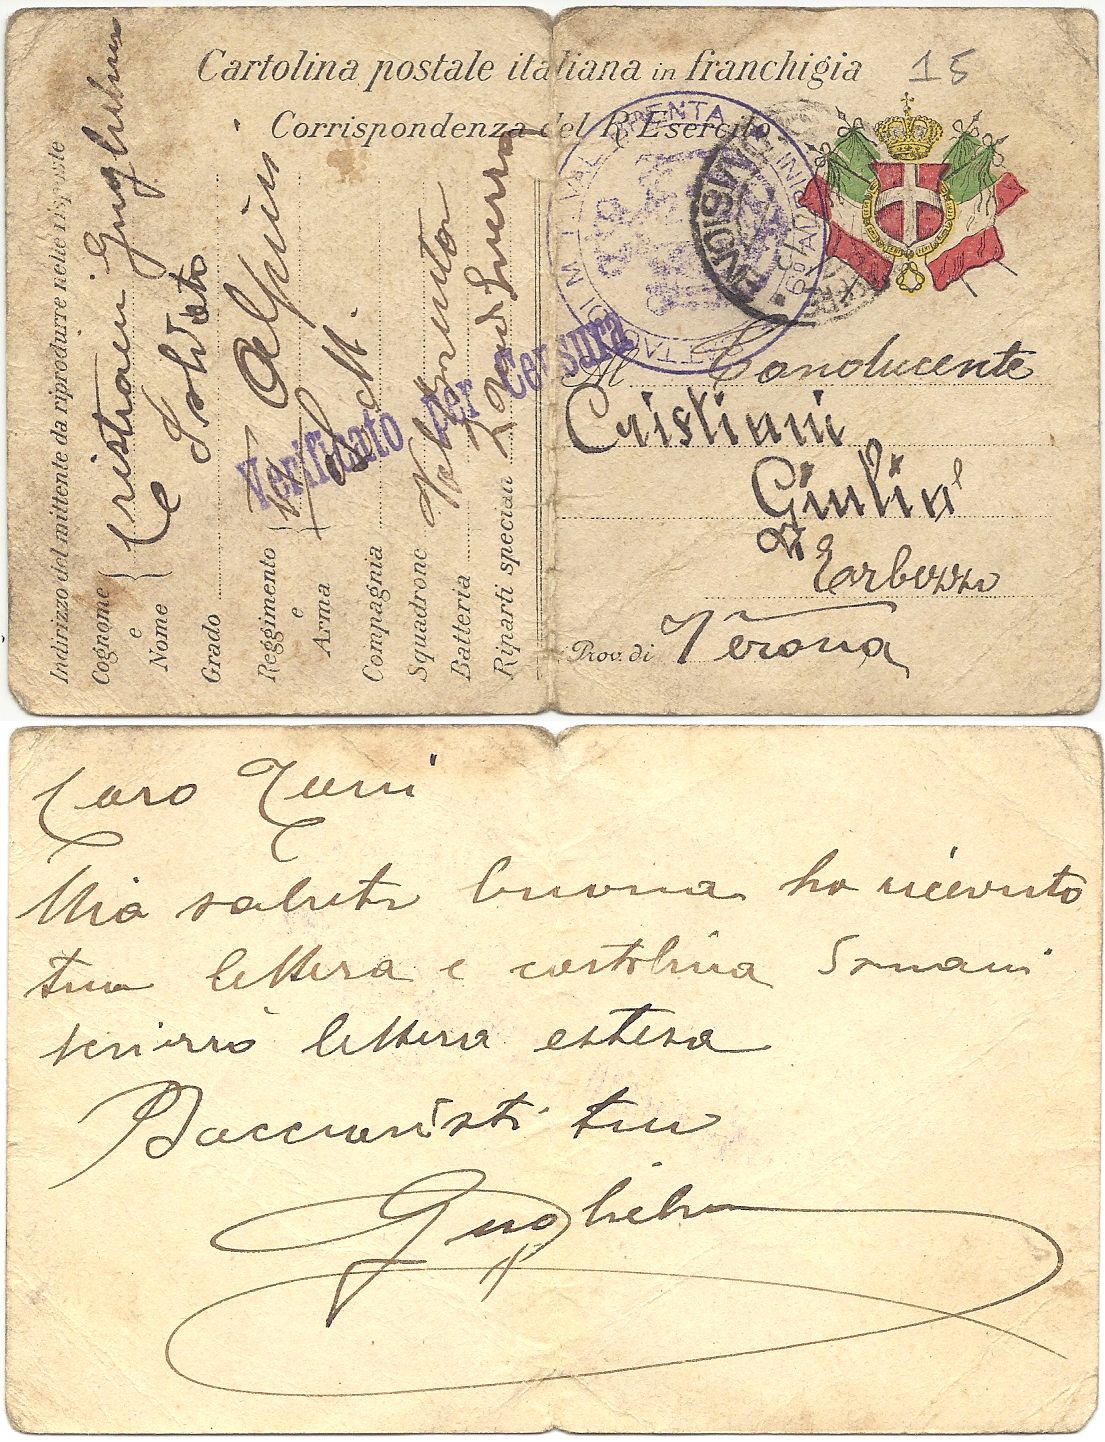 Cartolina postale italiana in franchigia
15
Corrispondenza del R. Esercito
Indirizzo del mittente da riprodurre nelle risposte
Cognome e Nome Cristiani Guglielmo
Grado Soldato
Reggimento e Arma 6 Alpini
Compagnia
Squadrone
Batteria
Riparti speciali Zona di Guerra
Verificato per Censura
VAL BRENTA
Al Conducente
Cristiani
Giulio
Prov. di Verona
Caro
Mia salute buona ho ricevuto
tua lettera e cartolina
scriverò lettera estesa
tuo
Guglielmo